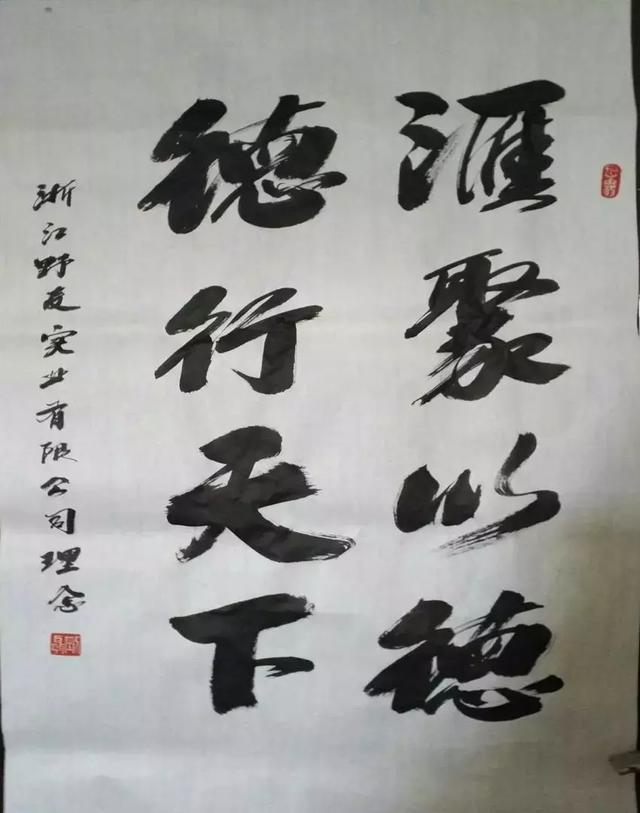 滙聚以德
德行天下
浙江野友实业有限公司理念